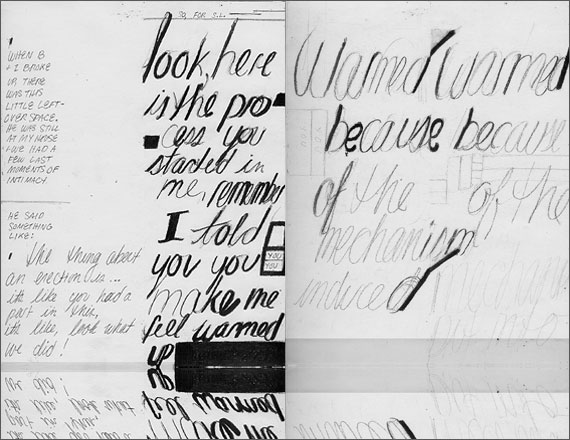 30, FOR S.L.
WHEN B
+ I BROKE
UP, THERE
WAS THIS
LITTLE LEFT-
OVER SPACE.
HE WAS STILL
AT MY HOUSE
+ WE HAD A
FEW LAST
MOMENTS OF
INTIMACY.
HE SAID
SOMETHING
LIKE:
the thing about
an erection is...
its like you had a
part in this,
its like, look what
we did!
look, here
is the pro
cess you
started in
me, remember
I told
you you
YOU
YOU
make me
feel warmed
up
Warmed warmed
because because
of the of the
mechanism
induced